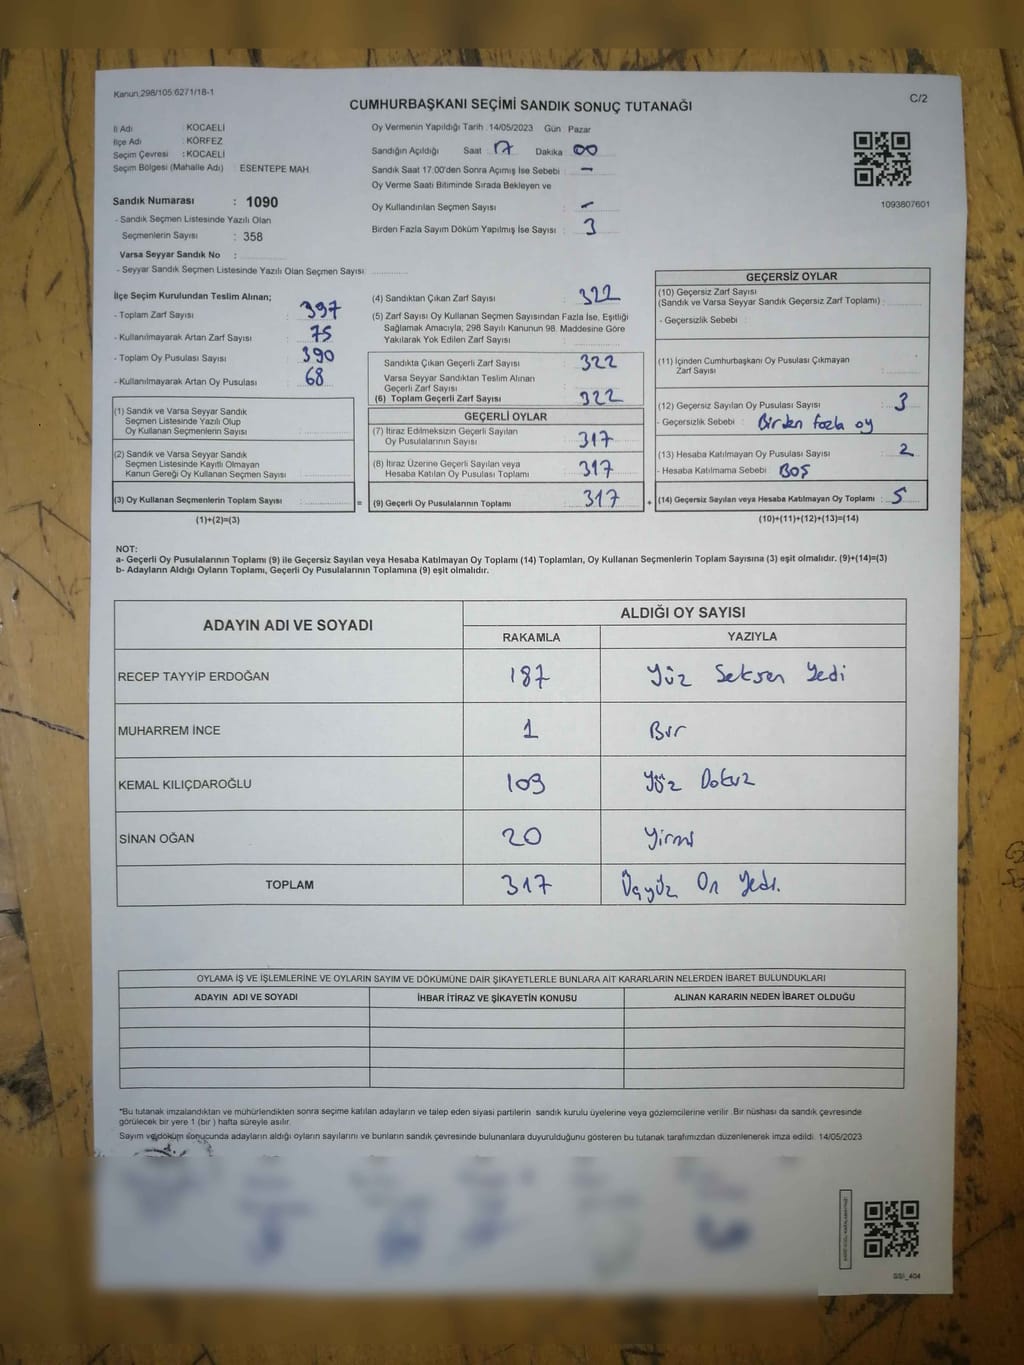 Kanun 298/105 6271/18-1
CUMHURBAŞKANI SEÇİMİ SANDIK SONUÇ TUTANAĞI
C/2
İl Adı : KOCAELİ
İlçe Adı : KÖRFEZ
Seçim Çevresi : KOCAELİ
Seçim Bölgesi (Mahalle Adı) ESENTEPE MAH.
Oy Vermenin Yapıldığı Tarih 14/05/2023 Gün Pazar
Sandığın Açıldığı Saat : 17 Dakika 00
Sandık Saat 17.00'den Sonra Açımış İse Sebebi : -
Oy Verme Saati Bitiminde Sırada Bekleyen ve
Oy Kullandırılan Seçmen Sayısı : -
Birden Fazla Sayım Döküm Yapılmış İse Sayısı : 3
1093807601
Sandık Numarası : 1090
- Sandık Seçmen Listesinde Yazılı Olan
Seçmenlerin Sayısı : 358
Varsa Seyyar Sandık No :
- Seyyar Sandık Seçmen Listesinde Yazılı Olan Seçmen Sayısı
İlçe Seçim Kurulundan Teslim Alınan;
- Toplam Zarf Sayısı : 397
- Kullanılmayarak Artan Zarf Sayısı : 75
- Toplam Oy Pusulası Sayısı : 390
- Kullanılmayarak Artan Oy Pusulası : 68
(1) Sandık ve Varsa Seyyar Sandık
Seçmen Listesinde Yazılı Olup
Oy Kullanan Seçmenlerin Sayısı :
(2) Sandık ve Varsa Seyyar Sandık
Seçmen Listesinde Kayıtlı Olmayan
Kanun Gereği Oy Kullanan Seçmen Sayısı :
(3) Oy Kullanan Seçmenlerin Toplam Sayısı :
(1)+(2)=(3)
=
(4) Sandıktan Çıkan Zarf Sayısı : 322
(5) Zarf Sayısı Oy Kullanan Seçmen Sayısından Fazla İse, Eşitliği
Sağlamak Amacıyla; 298 Sayılı Kanunun 98. Maddesine Göre
Yakılarak Yok Edilen Zarf Sayısı :
Sandıkta Çıkan Geçerli Zarf Sayısı : 322
Varsa Seyyar Sandıktan Teslim Alınan
Geçerli Zarf Sayısı :
(6) Toplam Geçerli Zarf Sayısı : 322
GEÇERLİ OYLAR
(7) İtiraz Edilmeksizin Geçerli Sayılan
Oy Pusulalarının Sayısı : 317
(8) İtiraz Üzerine Geçerli Sayılan veya
Hesaba Katılan Oy Pusulası Toplamı : 317
(9) Geçerli Oy Pusulalarının Toplamı : 317
+
GEÇERSİZ OYLAR
(10) Geçersiz Zarf Sayısı
(Sandık ve Varsa Seyyar Sandık Geçersiz Zarf Toplamı) :
- Geçersizlik Sebebi :
(11) İçinden Cumhurbaşkanı Oy Pusulası Çıkmayan
Zarf Sayısı :
(12) Geçersiz Sayılan Oy Pusulası Sayısı : 3
- Geçersizlik Sebebi : Birden fazla oy
(13) Hesaba Katılmayan Oy Pusulası Sayısı : 2
- Hesaba Katılmama Sebebi : BOŞ
(14) Geçersiz Sayılan veya Hesaba Katılmayan Oy Toplamı : 5
(10)+(11)+(12)+(13)=(14)
NOT:
a- Geçerli Oy Pusulalarının Toplamı (9) ile Geçersiz Sayılan veya Hesaba Katılmayan Oy Toplamı (14) Toplamları, Oy Kullanan Seçmenlerin Toplam Sayısına (3) eşit olmalıdır. (9)+(14)=(3)
b- Adayların Aldığı Oyların Toplamı, Geçerli Oy Pusulalarının Toplamına (9) eşit olmalıdır.
ADAYIN ADI VE SOYADI
ALDIĞI OY SAYISI
RAKAMLA YAZIYLA
RECEP TAYYİP ERDOĞAN 187 Yüz Seksen Yedi
MUHARREM İNCE 1 Bir
KEMAL KILIÇDAROĞLU 109 Yüz Dokuz
SİNAN OĞAN 20 Yirmi
TOPLAM 317 Üçyüz On Yedi.
OYLAMA İŞ VE İŞLEMLERİNE VE OYLARIN SAYIM VE DÖKÜMÜNE DAİR ŞİKAYETLERLE BUNLARA AİT KARARLARIN NELERDEN İBARET BULUNDUKLARI
ADAYIN ADI VE SOYADI İHBAR İTİRAZ VE ŞİKAYETİN KONUSU ALINAN KARARIN NEDEN İBARET OLDUĞU
*Bu tutanak imzalandıktan ve mühürlendikten sonra seçime katılan adayların ve talep eden siyasi partilerin sandık kurulu üyelerine veya gözlemcilerine verilir. Bir nüshası da sandık çevresinde
görülecek bir yere 1 (bir) hafta süreyle asılır.
Sayım ve döküm sonucunda adayların aldığı oyların sayılarını ve bunların sandık çevresinde bulunanlara duyurulduğunu gösteren bu tutanak tarafımızdan düzenlenerek imza edildi. 14/05/2023
SSI_404